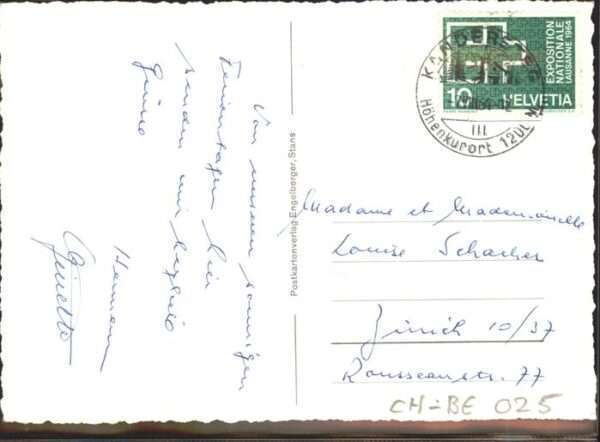 Von unseren sonnigen
Ferientagen hier
senden wir herzliche
Grüsse
Hermann
Ginetto
Postkartenverlag Engelberger, Stans
EXPOSITION
NATIONALE
LAUSANNE 1964
10 HELVETIA
KANDERSTEG
III
Höhenkurort 1200
Madame et Mademoiselle
Louise Schacher
Zürich 10/37
Rousseaustr. 77
CH-BE 025